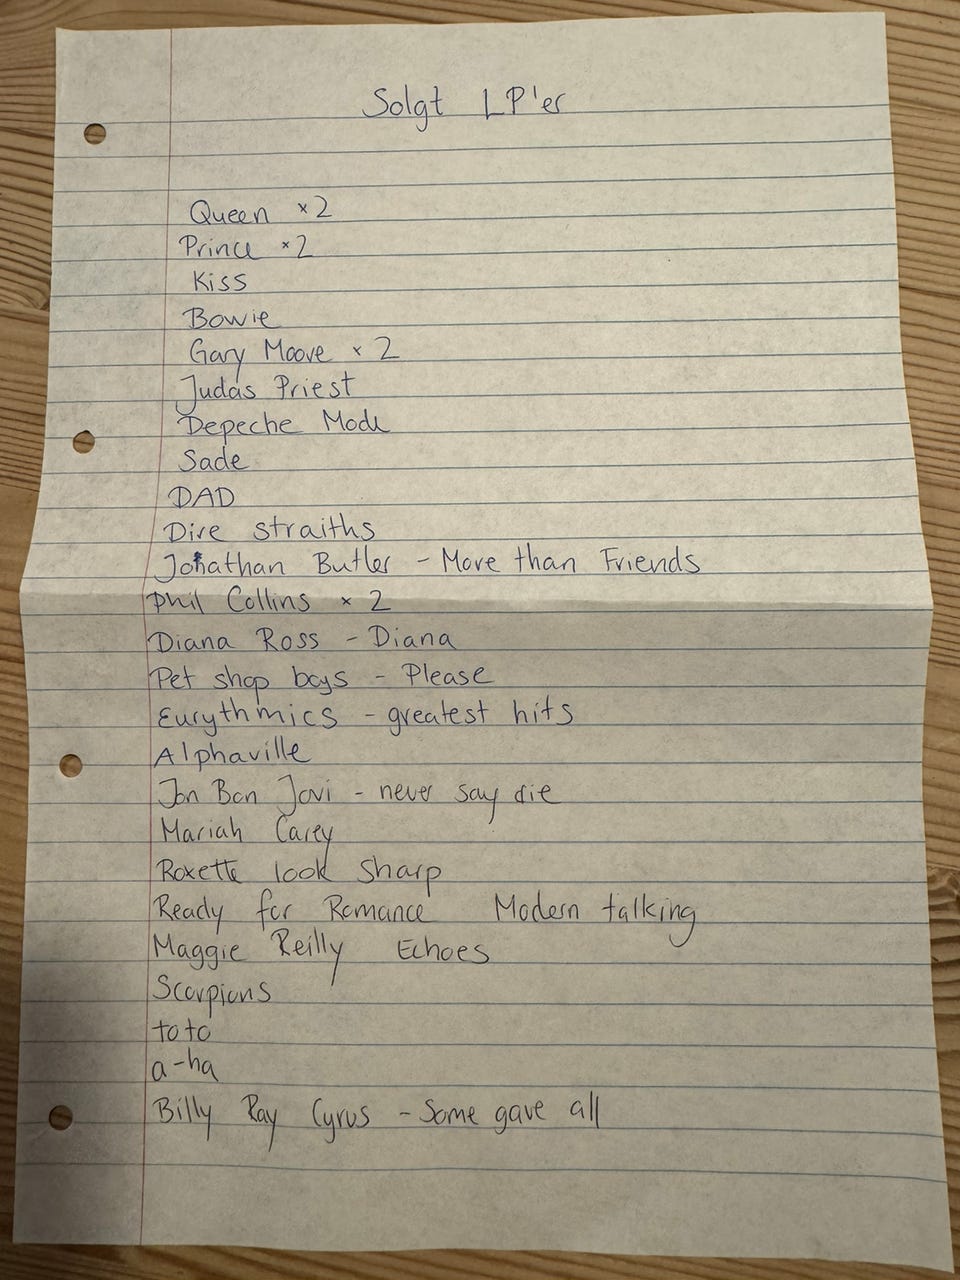 Solgt LP'er
Queen × 2
Prince × 2
Kiss
Bowie
Gary Moove × 2
Judas Priest
Depeche Mode
Sade
DAD
Dire straiths
Jonathan Butler - More than Friends
Phil Collins × 2
Diana Ross - Diana
Pet shop boys - Please
Eurythmics - greatest hits
Alphaville
Jon Bon Jovi - never say die
Mariah Carey
Roxette look sharp
Ready for Romance Modern talking
Maggie Reilly Echoes
Scorpions
toto
a-ha
Billy Ray Cyrus - Some gave all